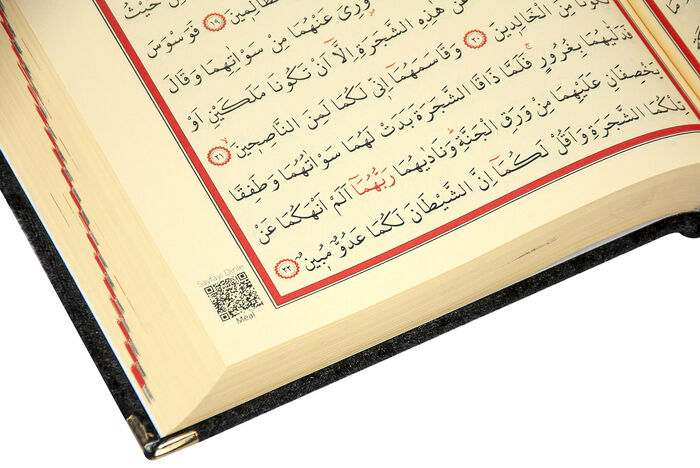 حَيْثُ
الظَّالِمِينَ ﴿١٩﴾ فَوَسْوَسَ
وُرِىَ عَنْهُمَا مِنْ سَوْاٰتِهِمَا وَقَالَ
عَنْ هٰذِهِ الشَّجَرَةِ اِلَّٓا اَنْ تَكُونَا مَلَكَيْنِ اَوْ
تَكُونَا مِنَ الْخَالِدٖينَ ﴿٢٠﴾ وَقَاسَمَهُمَٓا اِنّٖى لَكُمَا لَمِنَ النَّاصِحٖينَ ﴿٢١﴾
فَدَلّٰيهُمَا بِغُرُورٍ فَلَمَّا ذَاقَا الشَّجَرَةَ بَدَتْ لَهُمَا سَوْاٰتُهُمَا وَطَفِقَا
يَخْصِفَانِ عَلَيْهِمَا مِنْ وَرَقِ الْجَنَّةِ وَنَادٰيهُمَا رَبُّهُمَٓا اَلَمْ اَنْهَكُمَا عَنْ
تِلْكُمَا الشَّجَرَةِ وَاَقُلْ لَكُمَٓا اِنَّ الشَّيْطَانَ لَكُمَا عَدُوٌّ مُبٖينٌ ﴿٢٢﴾
Sayfayı Dinle
Meal